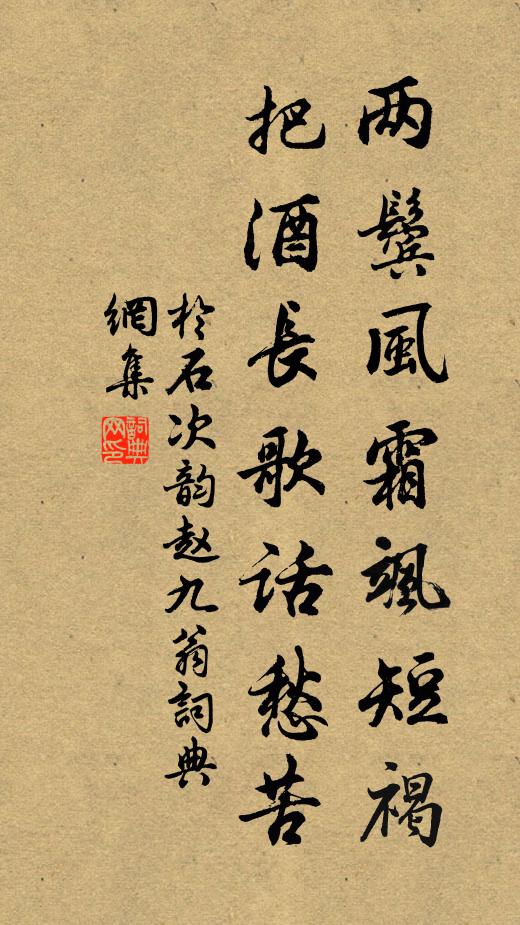 两鬓風霜颯短褐
把酒長歌话愁苦
於石次韵赵九翁詞典
網集
詞典网印